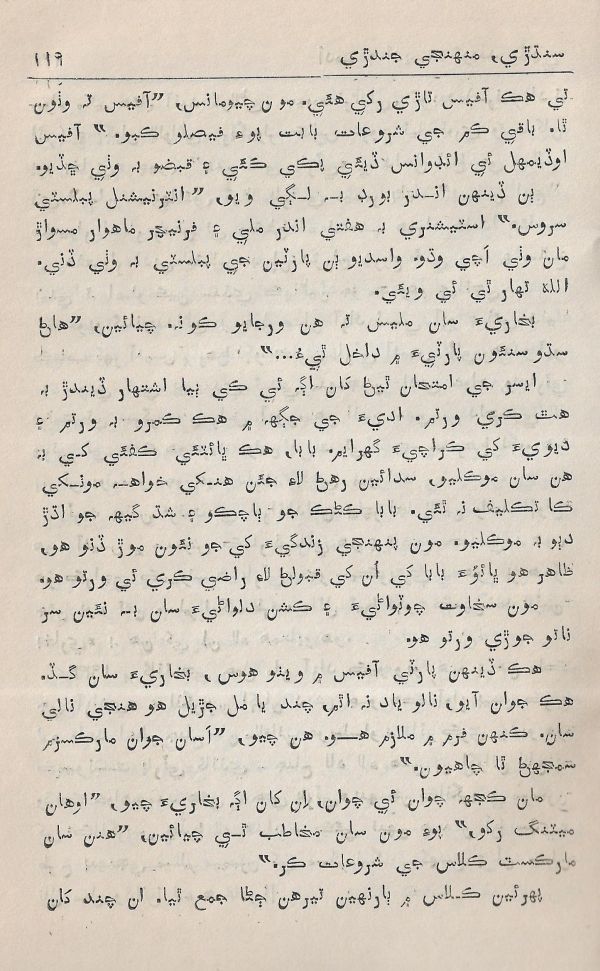 سنڌڙي، منهنجي جندڙي ۱۱۹
تي هڪ آفيس تاڙي رکي هئي. مون چيومانس، ”آفيس ته وٺون
ٿا. باقي ڪم جي شروعات بابت پوءِ فيصلو ڪبو.“ آفيس
اوڏيمهل ئي ائڊوانس ڏيئي پڪي ڪئي ۽ قبضو به وٺي ڇڏيو.
ٻن ڏينهن اندر بورڊ به لڳي ويو، ”انٽرنيشنل پبلسٽي
سروس.“ اسٽيشنري به هفتي اندر ملي ۽ فرنيچر ماهوار مسواڙ
مان وٺي اچي وڌو. واسديو ٻن پارٽين جي پبلسٽي به وٺي ڏني.
الله تهار ٿي ئي ويئي.
بخاريءَ سان مليس ته هن ورجايو کونه. چيائين، ”هاڻ
سڌو سنئون پارٽيءَ ۾ داخل ٿيءُ...“
ايسر جي امتحان ٿيڻ کان اڳ ئي کي ٻيا اشتهار ڏيندڙ به
هٿ ڪري ورتم. اديءَ جي جڳهه ۾ هڪ ڪمرو به ورتم ۽
ديويءَ کي ڪراچيءَ گهرايم. بابا، هڪ ڀائٽئي ڪفئي کي به
هن سان موڪليو، سدائين رهڻ لاءِ جئن هنکي خواهه مونکي
ڪا تڪليف نه ٿئي. بابا ڪڻڪ جو ٻاچڪو ۽ شڌ گيهه جو اڌڙ
دٻو به موڪليو. مون پنهنجي زندگيءَ کي جو نئون موڙ ڏنو هو،
ظاهر هو ڀائوءَ بابا کي اُن کي قبولڻ لاءِ راضي ڪري ئي ورتو هو.
مون سخاوت چوٽواڻيءَ ۽ ڪشن دلواڻيءَ سان به نئين سر
ناتو جوڙي ورتو هو.
هڪ ڏينهن پارٽي آفيس ۾ ويٺو هوس، بخاريءَ سان گڏ.
هڪ جوان آيو، نالو ياد نه اٿم، چند يا مل جڙيل هو هنجي نالي
سان. ڪنهن فرم ۾ ملازم هو. هن چيو، ”اسان جوان مارڪسزم
سمجهڻ ٿا چاهيون.“
مان ڪجهه چوان ئي چوان، اِن کان اڳ بخاريءَ چيو، ”اوهان
ميٽنگ رکو،“ پوءِ مون سان مخاطب ٿي چيائين، ”هنن سان
مارڪسٽ ڪلاس جي شروعات ڪر.“
پهرئين ڪلاس ۾ ٻارنهين تيرهن ڄڻا جمع ٿيا. ان چند کان